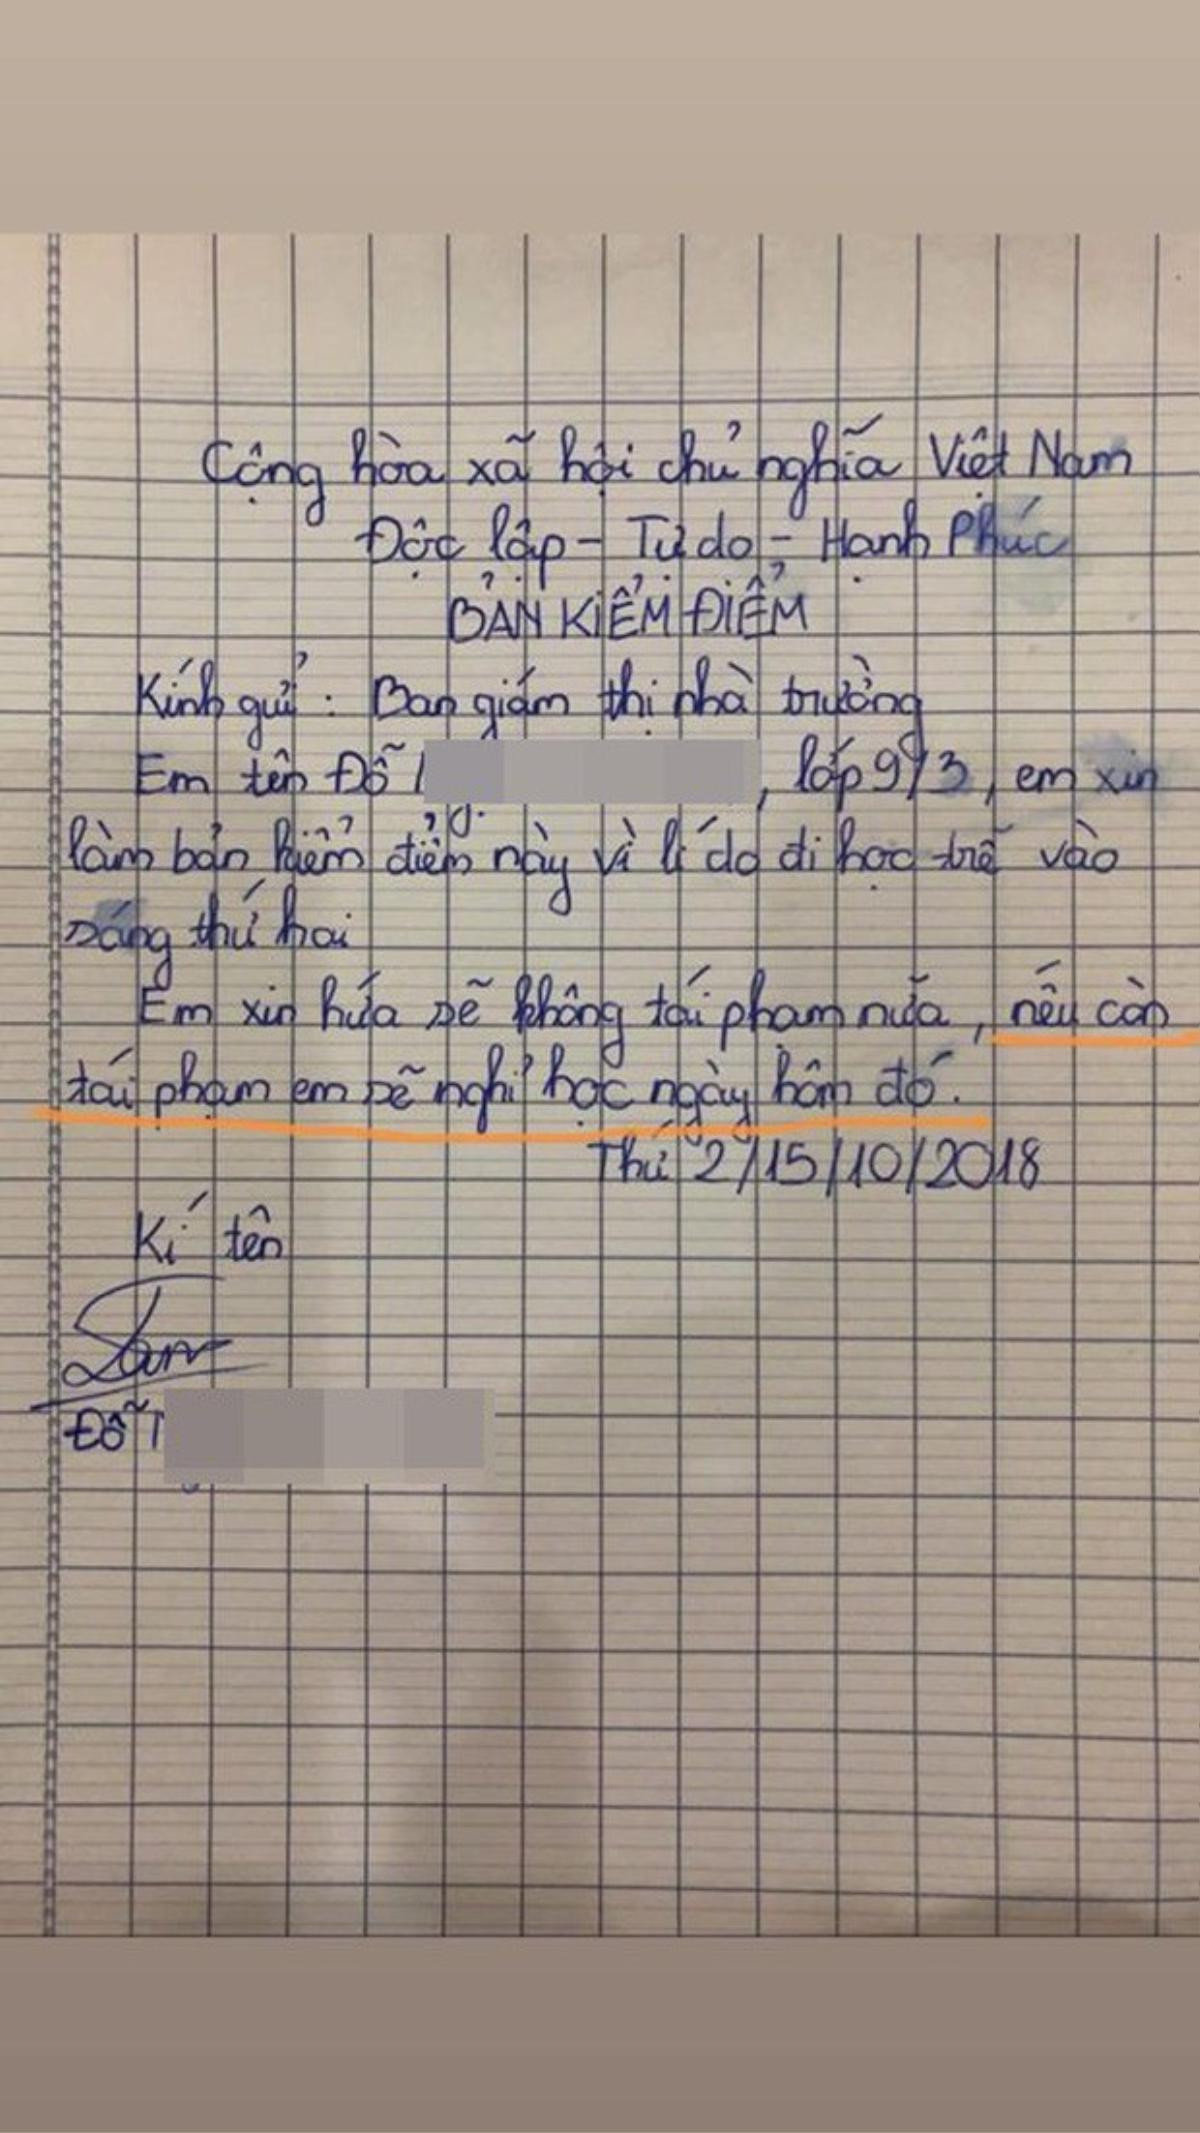 Cộng hòa xã hội chủ nghĩa Việt Nam
Độc lập - Tự do - Hạnh Phúc
BẢN KIỂM ĐIỂM
Kính gửi : Ban giám thị nhà trường
Em tên Đỗ , lớp 9/3, em xin
làm bản kiểm điểm này vì lí do đi học trễ vào
sáng thứ hai
Em xin hứa sẽ không tái phạm nữa, nếu còn
tái phạm em sẽ nghỉ học ngày hôm đó.
Thứ 2/15/10/2018
Kí tên
Đỗ T